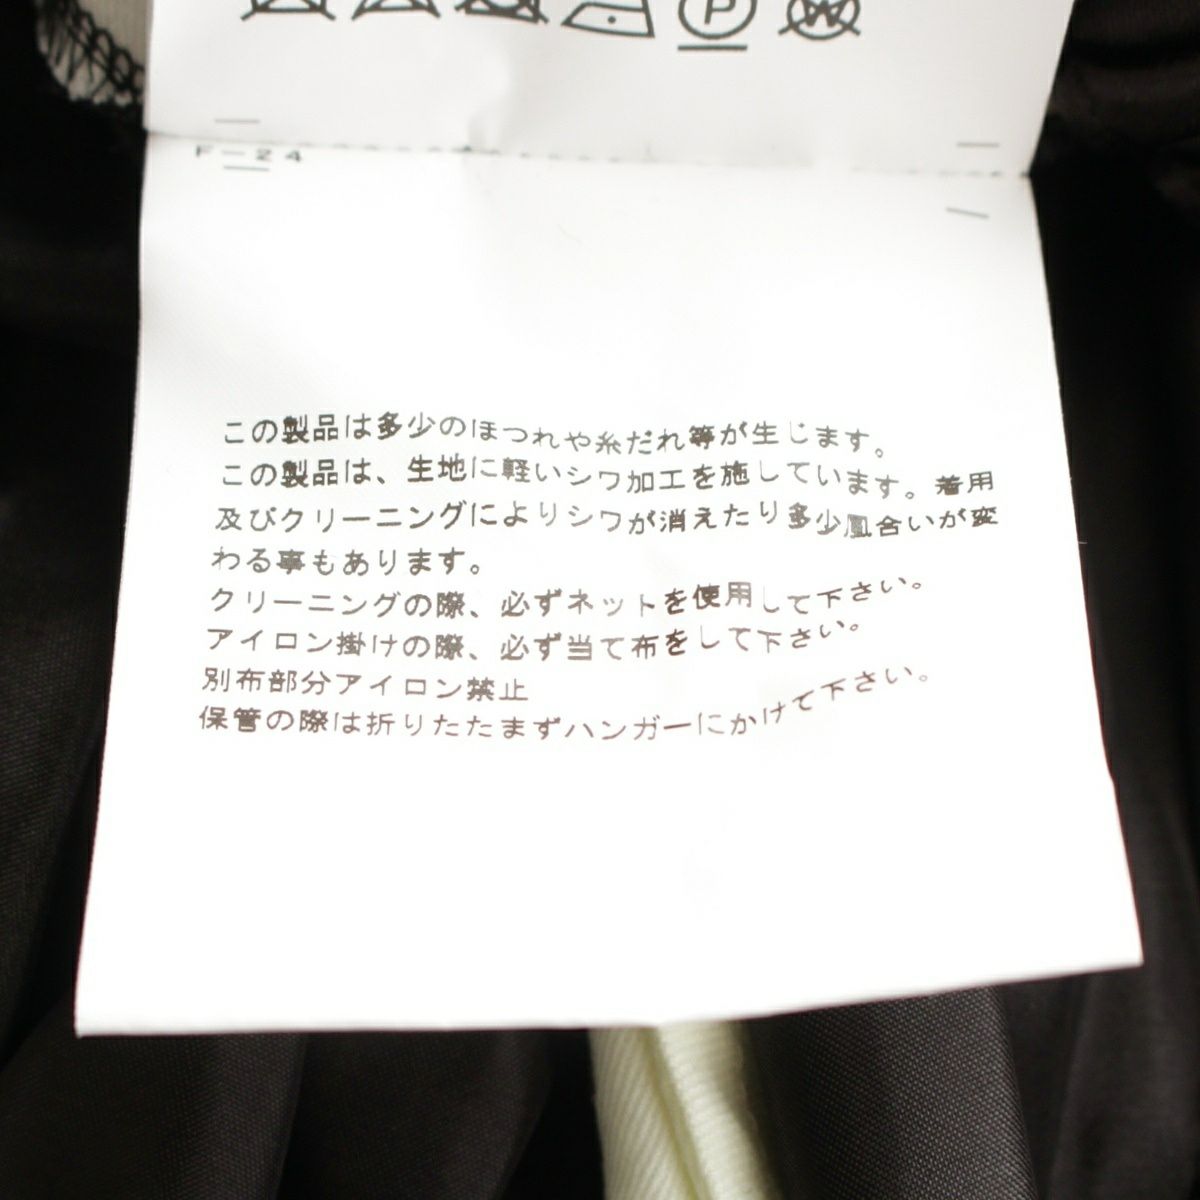 P
W
F-24
この製品は多少のほつれや糸だれ等が生じます。
この製品は、生地に軽いシワ加工を施しています。着用
及びクリーニングによりシワが消えたり多少風合いが変
わる事もあります。
クリーニングの際、必ずネットを使用して下さい。
アイロン掛けの際、必ず当て布をして下さい。
別布部分アイロン禁止
保管の際は折りたたまずハンガーにかけて下さい。